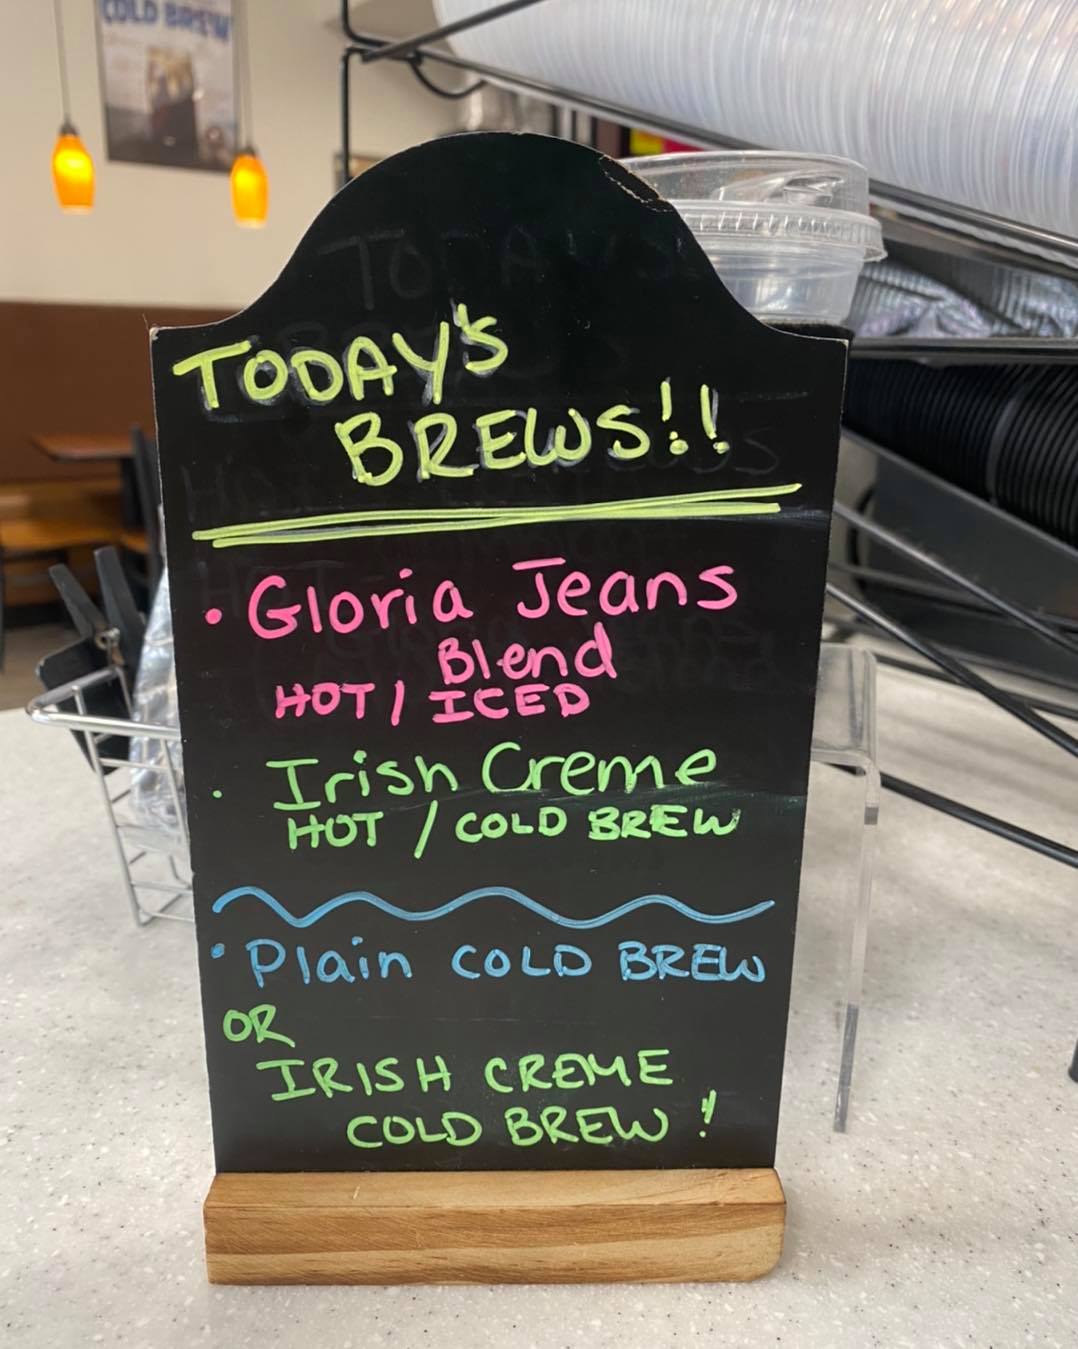 COLD BREW
TODAY'S
BREWS!!
• Gloria Jeans
Blend
HOT / ICED
• Irish Creme
HOT / COLD BREW
• Plain COLD BREW
OR
IRISH CREME
COLD BREW!